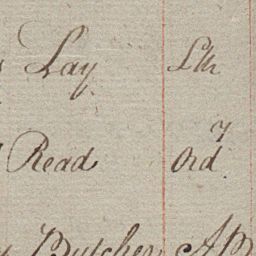 Lay Lth
Read Ord.y
Butcher AB